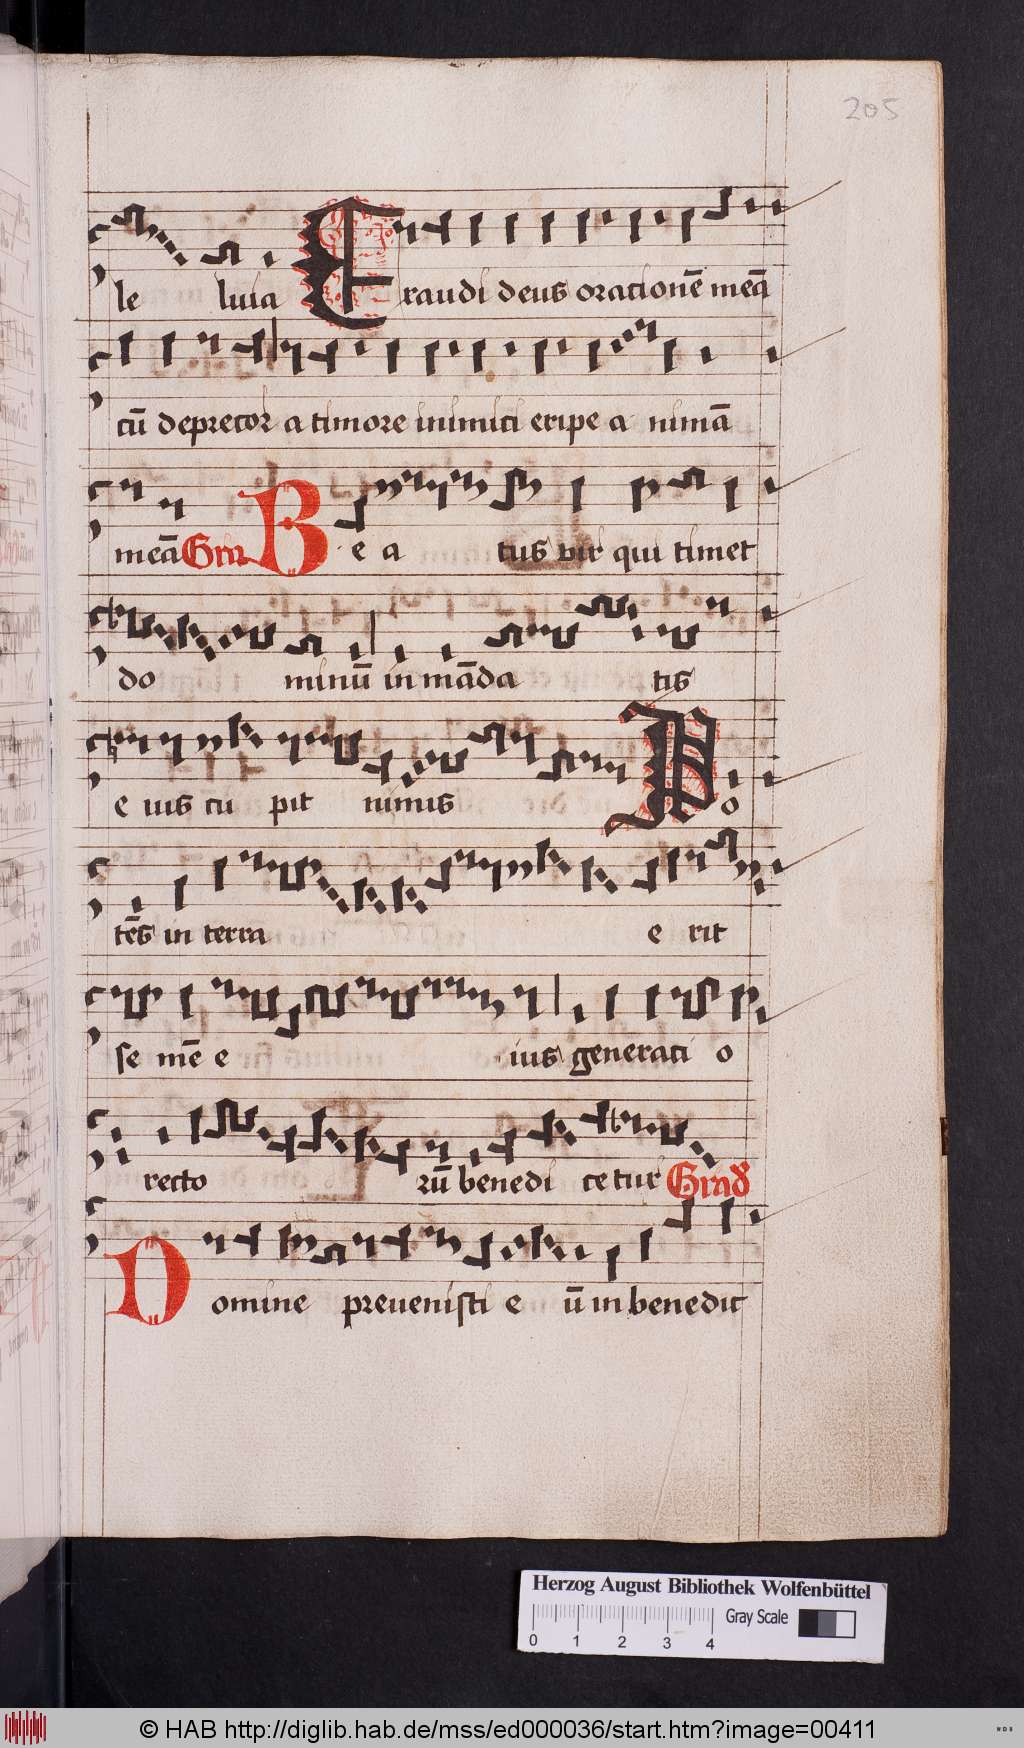 205
le luia Exaudi deus orationē meā
cū deprecor a timore inimici eripe a nimā
meā Gꝛ Be a tus vir qui timet
do minū in māda tis
e ius cu pit nimis Po
tēs in terra e rit
se mē e ius generati o
recto rū benedi cetur Grad
Domine preuenisti e ū in benedic
Herzog August Bibliothek Wolfenbüttel
0 1 2 3 4 Gray Scale
© HAB http://diglib.hab.de/mss/ed000036/start.htm?image=00411